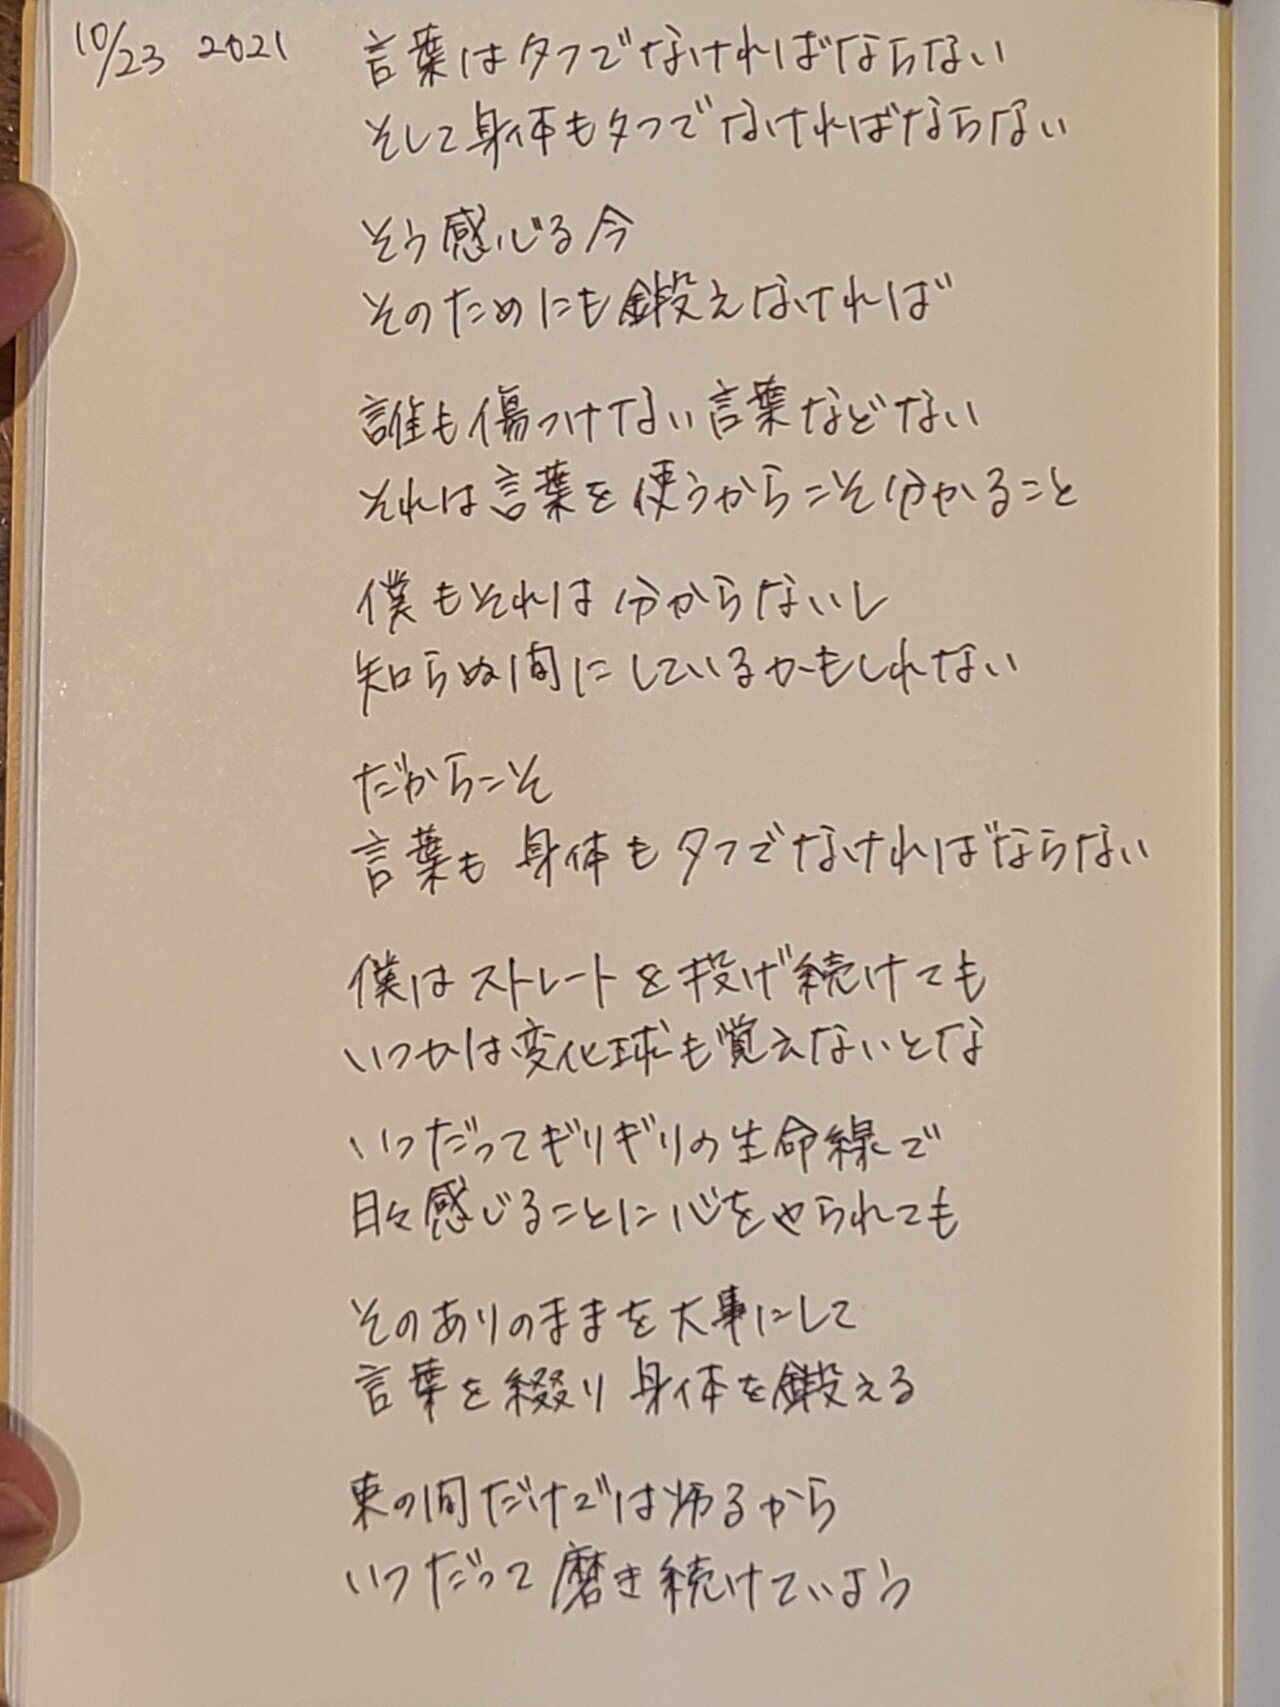 10/23 2021
言葉はタフでなければならない
そして身体もタフでなければならない
そう感じる今
そのためにも鍛えなければ
誰も傷つけない言葉などない
それは言葉を使うからこそ分かること
僕もそれは分からないし
知らぬ間にしているかもしれない
だからこそ
言葉も身体もタフでなければならない
僕はストレートを投げ続けても
いつかは変化球も覚えないとな
いつだってギリギリの生命線で
日々感じることに心をやられても
そのありのままを大事にして
言葉を綴り身体を鍛える
束の間だけでは鈍るから
いつだって磨き続けていよう